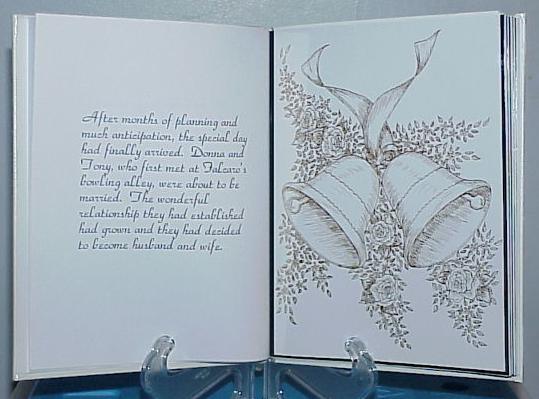 After months of planning and
much anticipation, the special day
had finally arrived. Donna and
Tony, who first met at Falcaro's
bowling alley, were about to be
married. The wonderful
relationship they had established
had grown and they had decided
to become husband and wife.